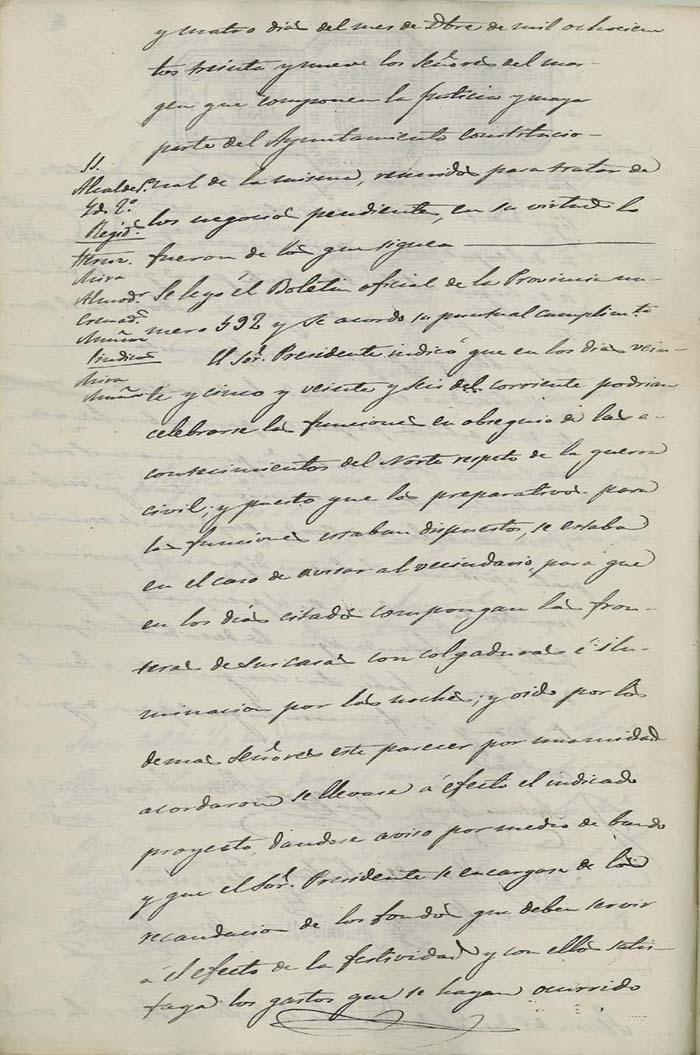 y cuatro dias del mes de Dbre de mil ochocien
tos treinta y nueve los Señores del mar-
gen que componen la Justicia y mayor
parte del Ayuntamiento constitucio-
nal de la misma, reunidos para tratar de
los negocios pendientes, en su virtud lo
fueron de los que siguen
Se leyo el Boletin oficial de la Provincia nu-
mero 592 y se acordo su puntual cumplimto
El Sor. Presidente indicó que en los dias vein-
te y cinco y veinte y seis del corriente podrian
celebrarse las funciones en obsequio de los a-
contecimientos del Norte respeto de la guerra
civil; y puesto que los preparativos para
las funciones estaban dispuestos, se estaba
en el caso de avisar al vecindario, para que
en los dias citados compongan las fron-
teras de sus casas con colgaduras é ilu-
minacion por las noches; y oido por los
demas Señores este parecer por unanimidad
acordaron se llevase á efecto el indicado
proyecto, dandose aviso por medio de bando
y que el Sor. Presidente se encargase de la
recaudacion de los fondos que deben servir
á el efecto de la festividad y con ellos satis-
faga los gastos que se hayan ocurrido
SS.
Alcaldes 1o.
Yd. 2o.
Regids.
Mira
Almodr
Muñoz
Sindicos
Mira
Muñoz